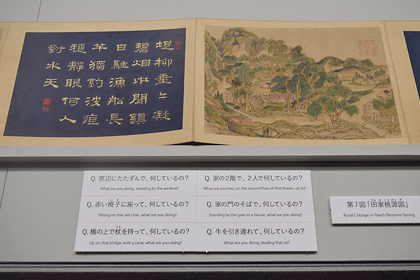 堤柳垂〻凝
碧烟中間鎮
日駐漁船長
竿獨釣波痕
穩靜眼何人
對水天
Q. 窓辺にたたずんで、何しているの？
What are you doing, standing by the window?
Q. 赤い椅子に座って、何しているの？
Sitting on that red chair, what are you doing?
Q. 橋の上で杖を持って、何しているの？
Up on that bridge, with a cane, what are you doing?
Q. 家の2階で、2人で何しているの？
What are you two, on the second floor of that house, up to?
Q. 家の門のそばで、何しているの？
Standing by the gate to a house, what are you doing?
Q. 牛を引き連れて、何しているの？
What are you doing, leading that ox?
第1図「田家桃源図」
Rural Cottage in Peach Blossom Spring